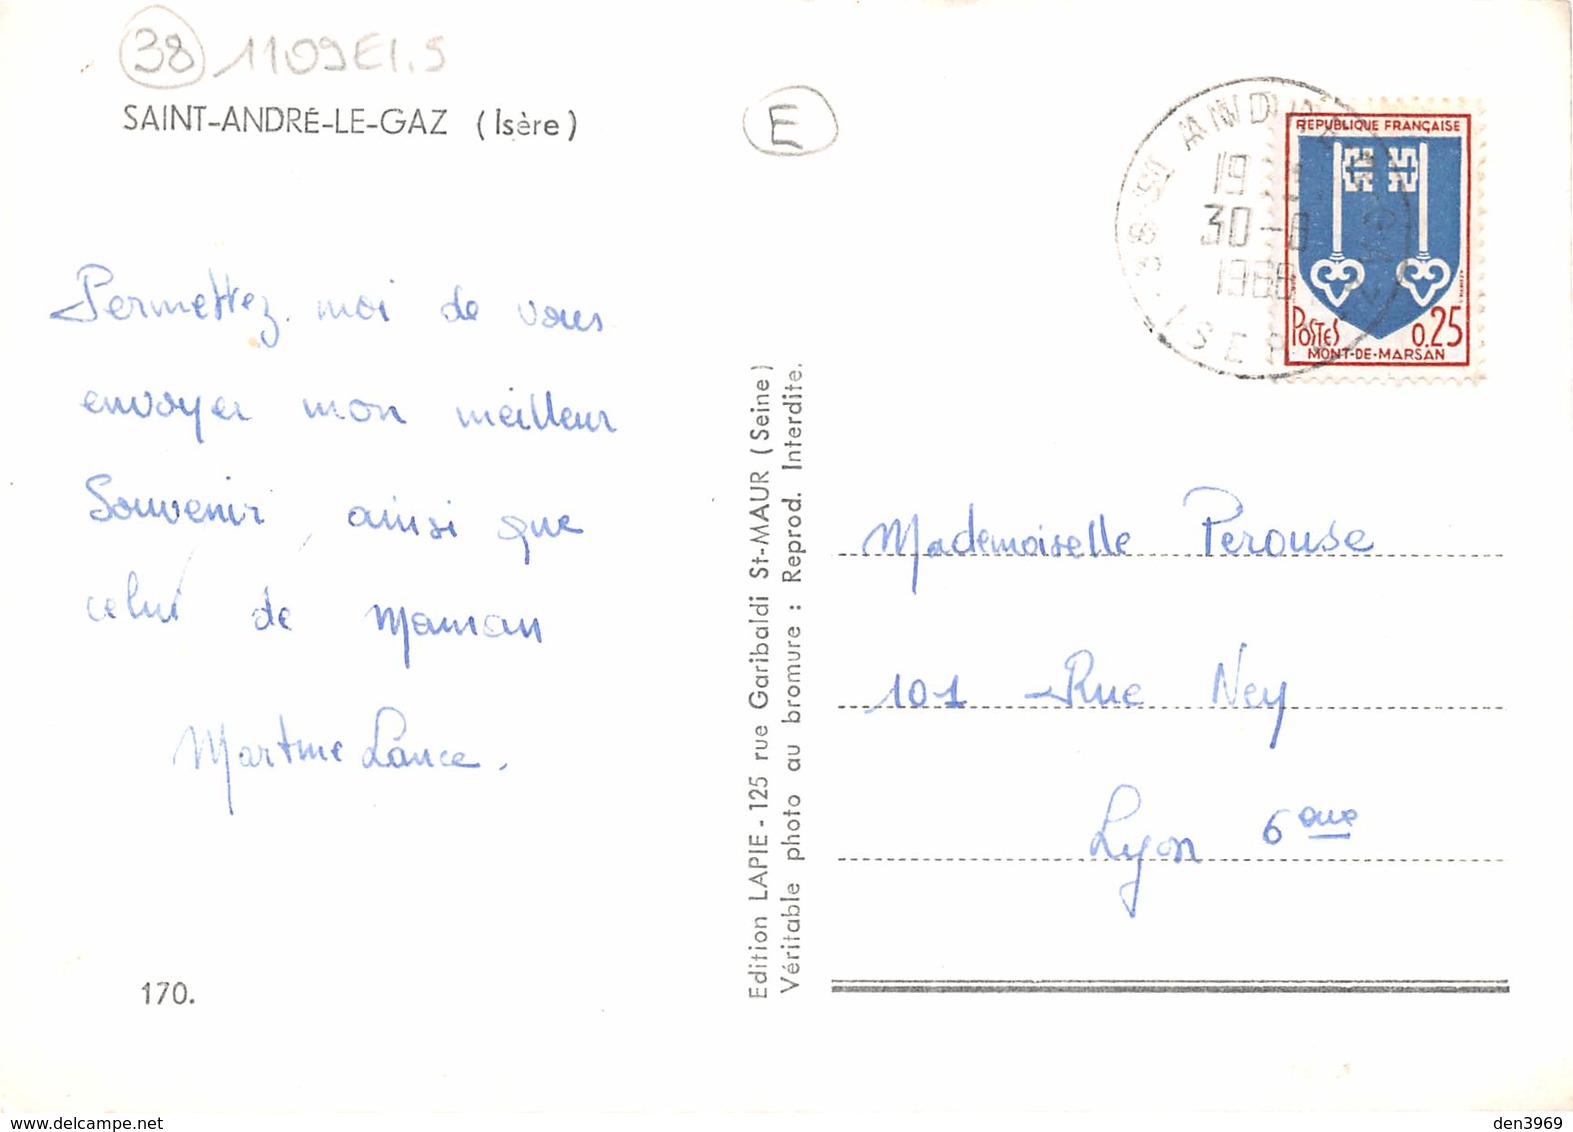 38 1109E1.5
SAINT-ANDRÉ-LE-GAZ (Isère)
E
Permettez. moi de vous
envoyer mon meilleur
Souvenir, ainsi que
celui de Maman
Martine Lance.
170.
Edition LAPIE - 125 rue Garibaldi St-MAUR (Seine)
Véritable photo au bromure : Reprod. Interdite.
38 - St ANDRE
19
30-8
1968
ISERE
REPUBLIQUE FRANÇAISE
POSTES 0.25
MONT-DE-MARSAN
Mademoiselle Perouse
101 - Rue Ney
Lyon 6eme
delcampe.net
den3969